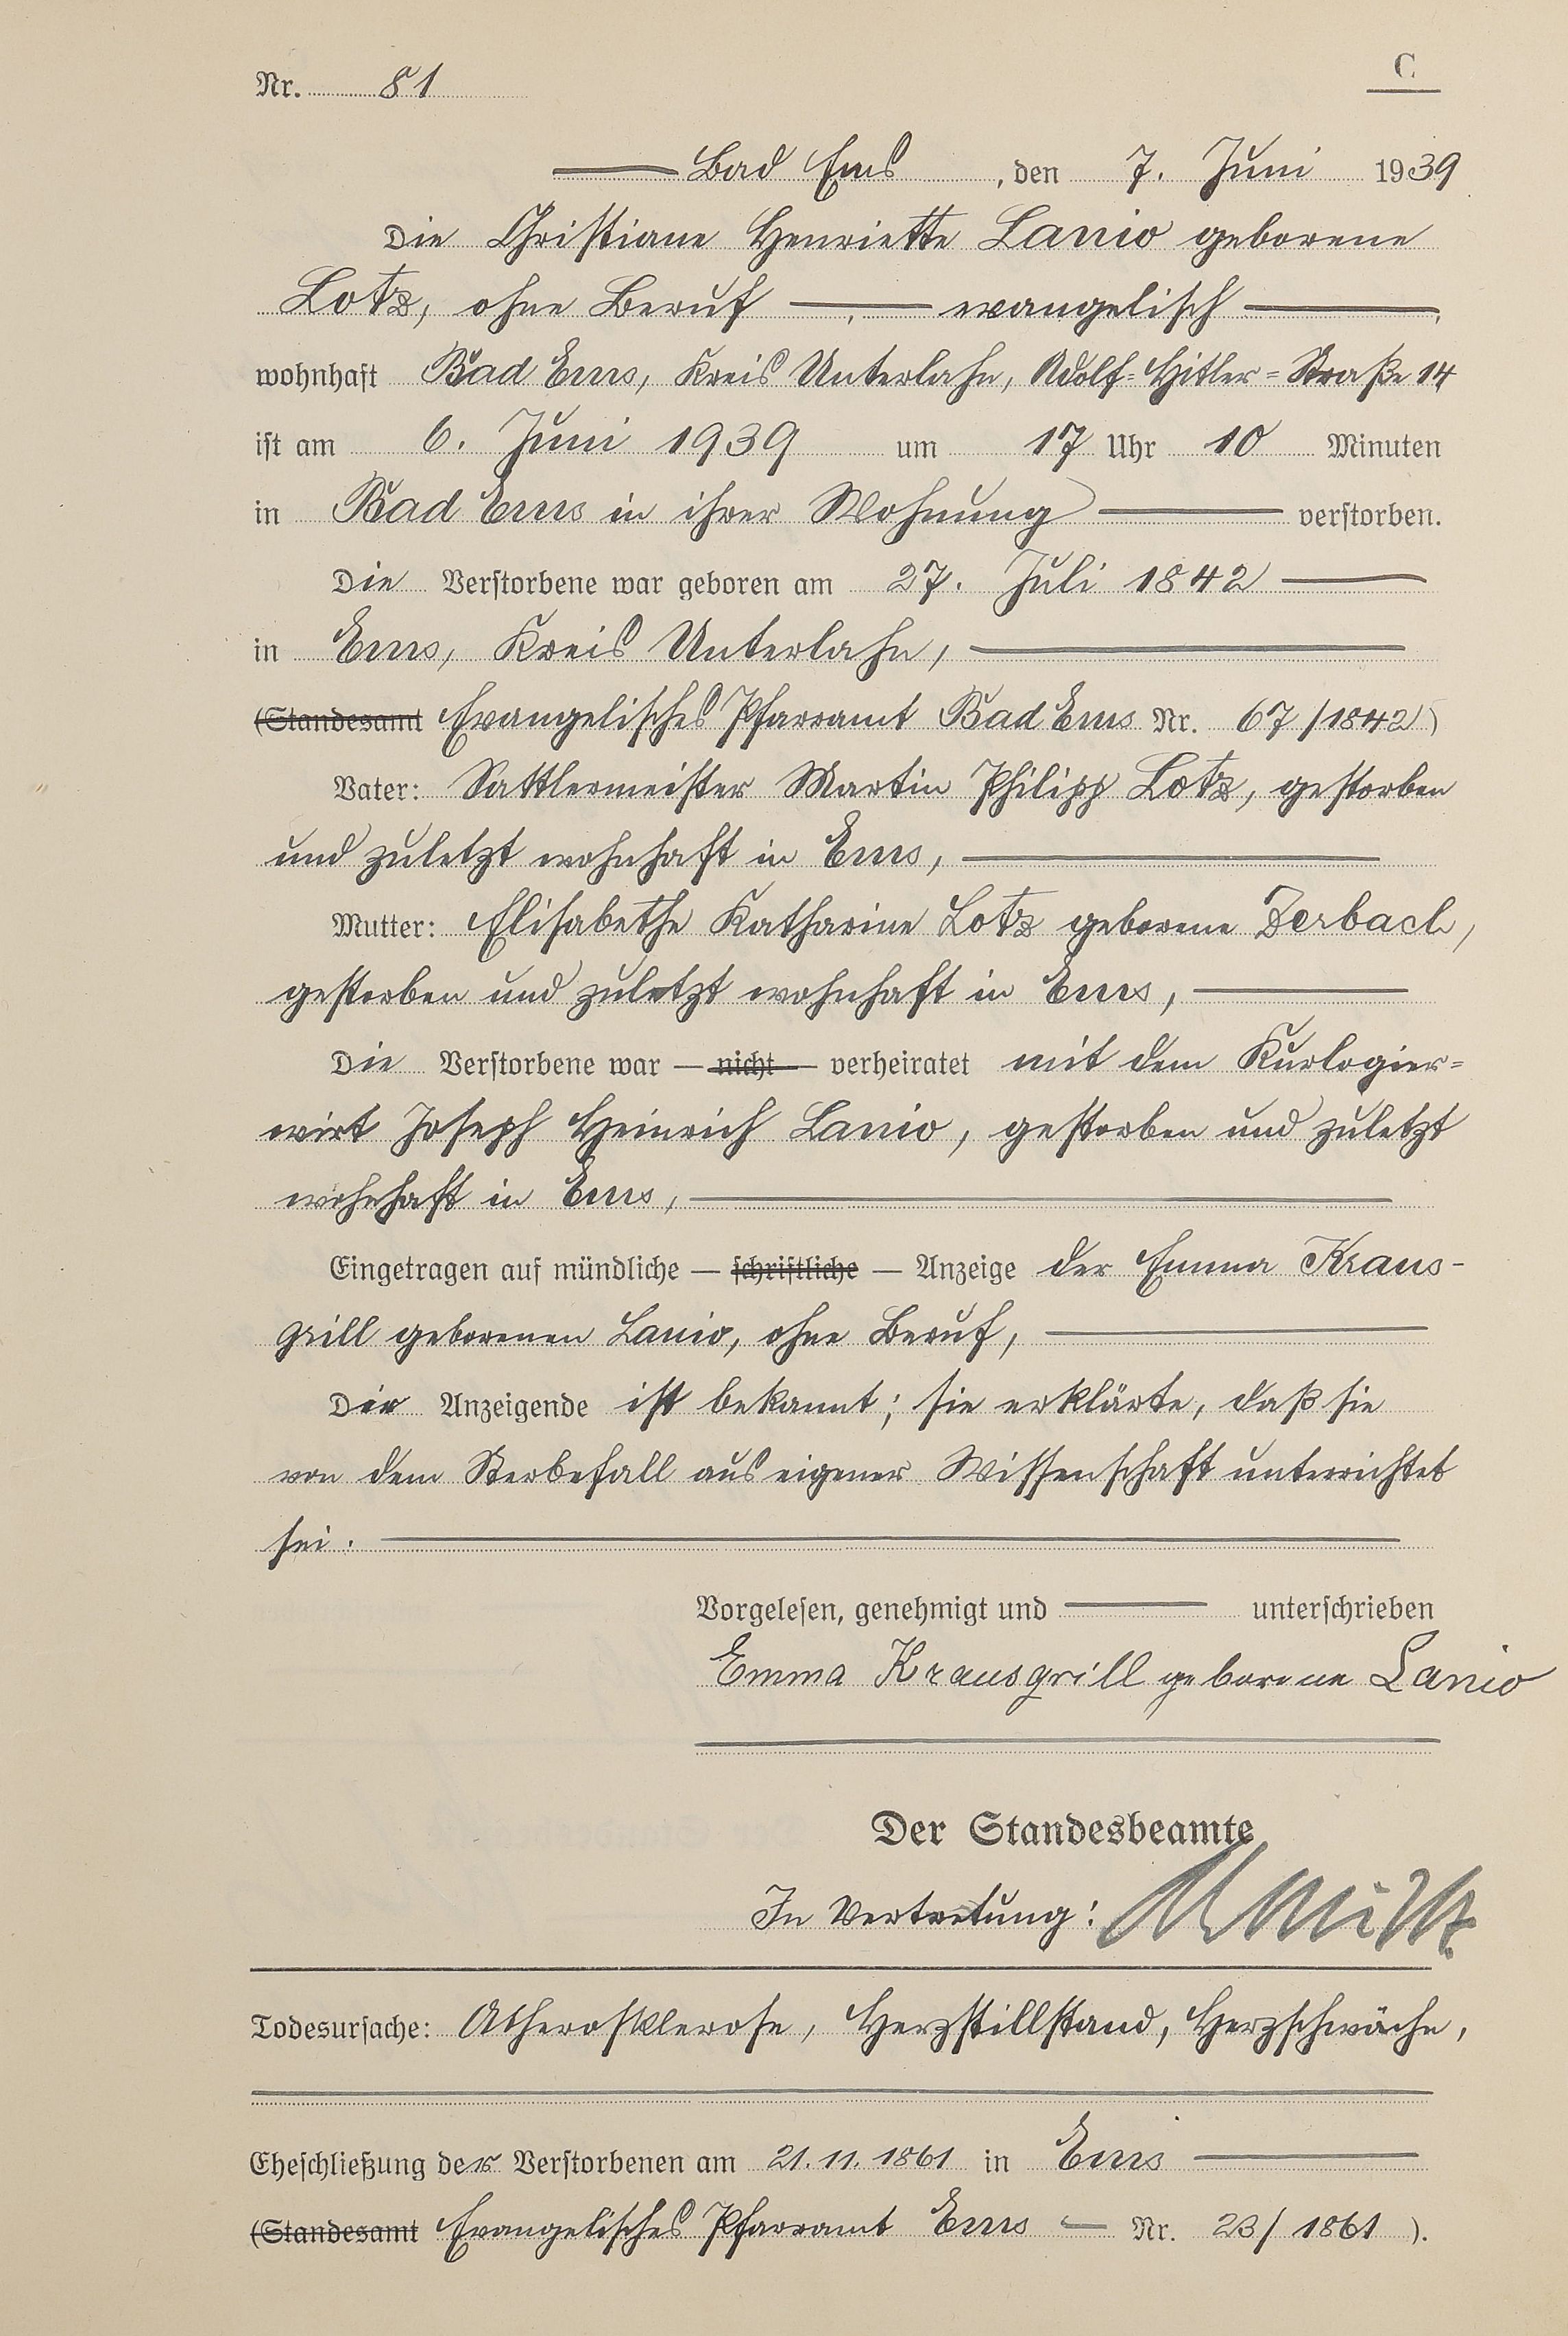 Nr. 81
C
Bad Ems, den 7. Juni 1939
Die Christiane Henriette Lanio geborene
Lotz, ohne Beruf —,— evangelisch —,
wohnhaft Bad Ems, Kreis Unterlahn, Adolf=Hitler=Straße 14
ist am 6. Juni 1939 um 17 Uhr 10 Minuten
in Bad Ems in ihrer Wohnung — verstorben.
Die Verstorbene war geboren am 27. Juli 1842 —
in Ems, Kreis Unterlahn, —
(Standesamt Evangelisches Pfarramt Bad Ems Nr. 67/1842)
Vater: Sattlermeister Martin Philipp Lotz, gestorben
und zuletzt wohnhaft in Ems, —
Mutter: Elisabethe Katharine Lotz geborene Zerbach,
gestorben und zuletzt wohnhaft in Ems, —
Die Verstorbene war — nicht — verheiratet mit dem Kurlogier=
wirt Joseph Heinrich Lanio, gestorben und zuletzt
wohnhaft in Ems, —
Eingetragen auf mündliche — schriftliche — Anzeige der Emma Kraus-
grill geborenen Lanio, ohne Beruf, —
Die Anzeigende ist bekannt; sie erklärte, daß sie
von dem Sterbefall aus eigener Wissenschaft unterrichtet
sei. —
Vorgelesen, genehmigt und — unterschrieben
Emma Krausgrill geborene Lanio
Der Standesbeamte
In Vertretung:
Todesursache: Atherosklerose, Herzstillstand, Herzschwäche,
Eheschließung der Verstorbenen am 21.11.1861 in Ems —
(Standesamt Evangelisches Pfarramt Ems — Nr. 23/1861).